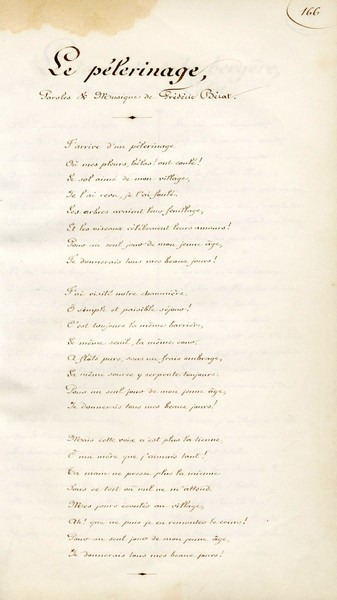 166
Le pèlerinage,
Paroles & Musique de Frédéric Bérat.
J'arrive d'un pèlerinage
Où mes pleurs, hélas! ont coulé!
Le sol aimé de mon village,
Je l'ai revu, je l'ai foulé.
Les arbres avaient leur feuillage,
Et les oiseaux célébraient leurs amours!
Pour un seul jour de mon jeune âge,
Je donnerais tous mes beaux jours!
J'ai visité notre chaumière,
Ô simple et paisible séjour!
C'est toujours la même barrière,
Le même seuil, la même cour,
À flots purs, sous un frais ombrage,
La même source y serpente toujours.
Pour un seul jour de mon jeune âge,
Je donnerais tous mes beaux jours!
Mais cette voix n'est plus la tienne
Ô ma mère que j'aimais tant!
Ta main ne presse plus la mienne
Sous ce toit où nul ne m'attend.
Mes jours écoulés au village,
Ah! que ne puis-je en remonter le cours!
Pour un seul jour de mon jeune âge,
Je donnerais tous mes beaux jours!